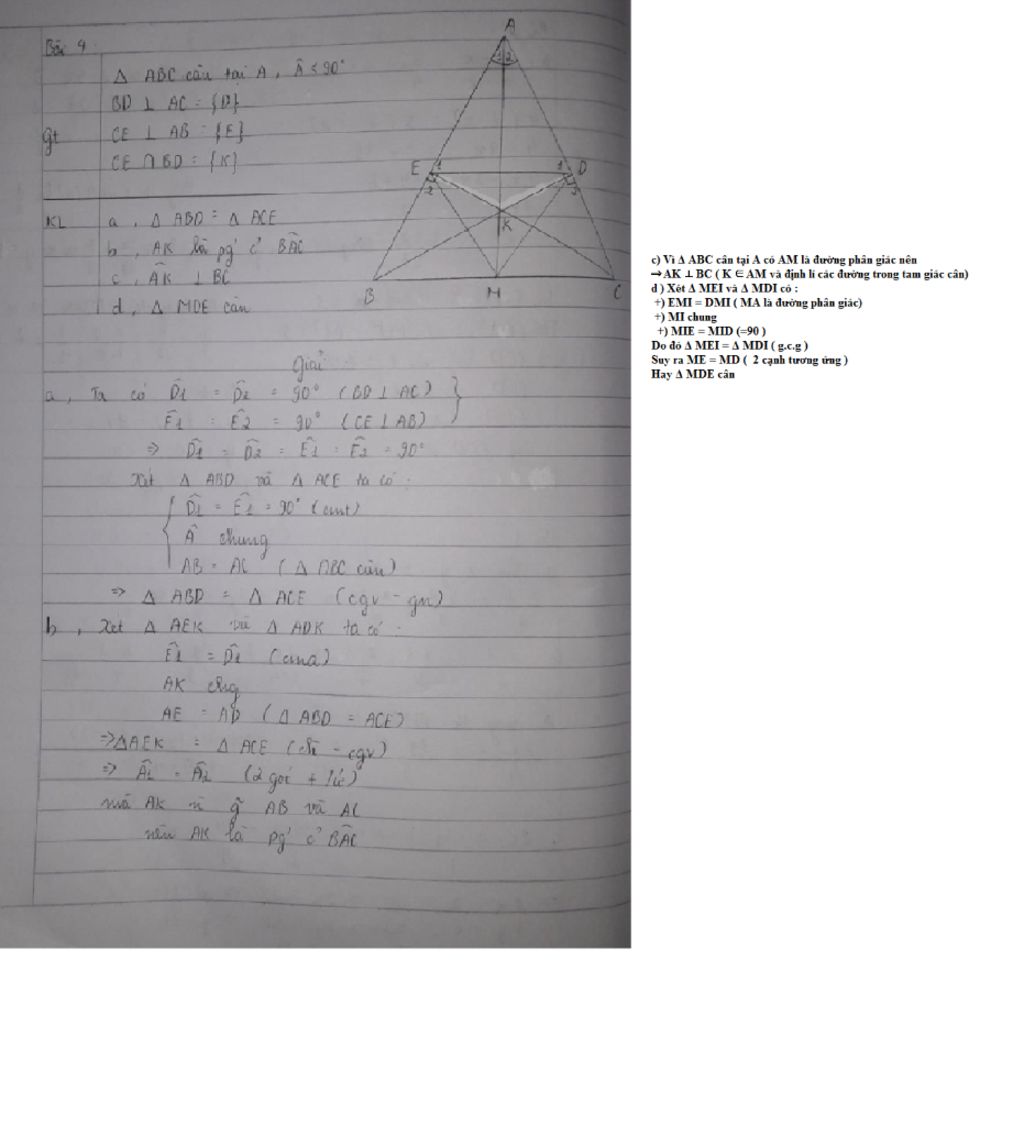 Bài 4
Δ ABC cân tại A, Â < 90°
BD ⊥ AC = {D}
gt CE ⊥ AB = {E}
CE ∩ BD = {K}
KL a, Δ ABD = Δ ACE
b, AK là pg' c' BÂC
c, AK ⊥ BC
d, Δ MDE cân
A
1 2
E 1 1 D
2 2
K
B M C
Giải
a, Ta có D̂1 = D̂2 = 90° (BD ⊥ AC)
Ê1 = Ê2 = 90° (CE ⊥ AB)
=> D̂1 = D̂2 = Ê1 = Ê2 = 90°
Xét Δ ABD và Δ ACE ta có:
D̂1 = Ê1 = 90° (cmt)
Â chung
AB = AC (Δ ABC cân)
=> Δ ABD = Δ ACE (cgv - gn)
b, Xét Δ AEK và Δ ADK ta có:
Ê1 = D̂1 (cma)
AK chg
AE = AD (Δ ABD = ACE)
=> Δ AEK = Δ ACE (ch - cgv)
=> Â1 = Â2 (2 góc + /ứ)
mà AK n g̃ AB và AC
nên AK là pg' c' BÂC
c) Vì Δ ABC cân tại A có AM là đường phân giác nên
⇒ AK ⊥ BC ( K ∈ AM và định lí các đường trong tam giác cân)
d ) Xét Δ MEI và Δ MDI có :
+) EMI = DMI ( MA là đường phân giác)
+) MI chung
+) MIE = MID (=90 )
Do đó Δ MEI = Δ MDI ( g.c.g )
Suy ra ME = MD ( 2 cạnh tương ứng )
Hay Δ MDE cân